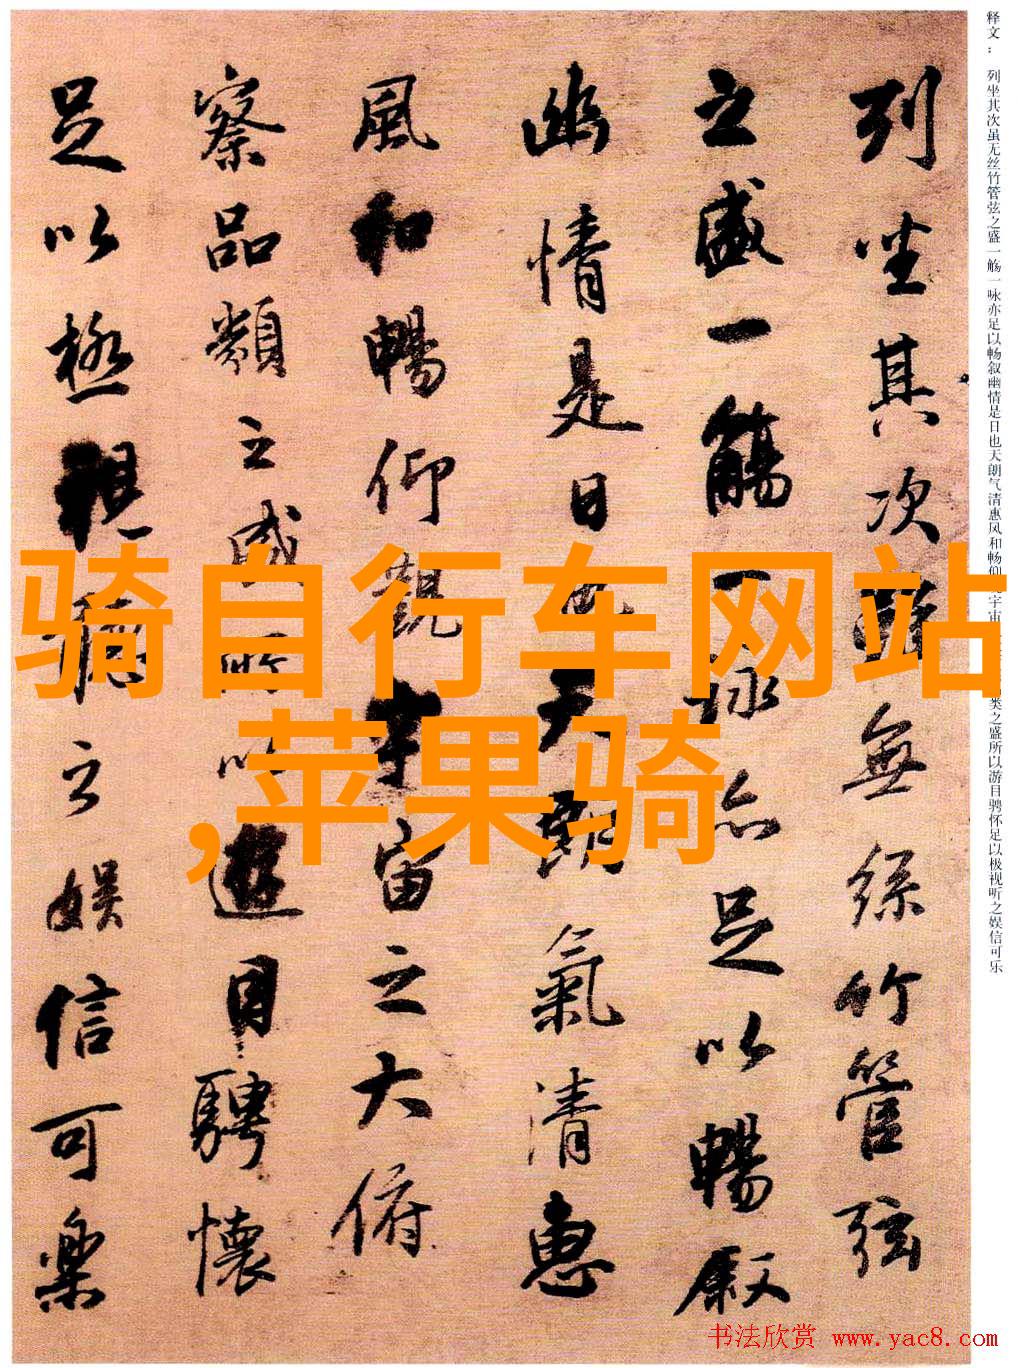 释文： 列坐其次虽无丝竹管弦之盛一觞一咏亦足以畅叙幽情是日也天朗气清惠风和畅仰宇宙类之盛所以游目骋怀足以极视听之娱信可乐
列坐其次雖無絲竹管弦
之盛一觴一詠亦足以暢叙
幽情是日也天朗氣清惠
風和暢仰觀宇宙之大俯
察品類之盛所以遊目騁懷
足以極視聽之娛信可樂
骑自行车网站
,苹果骑
书法欣赏 www.yac8.com